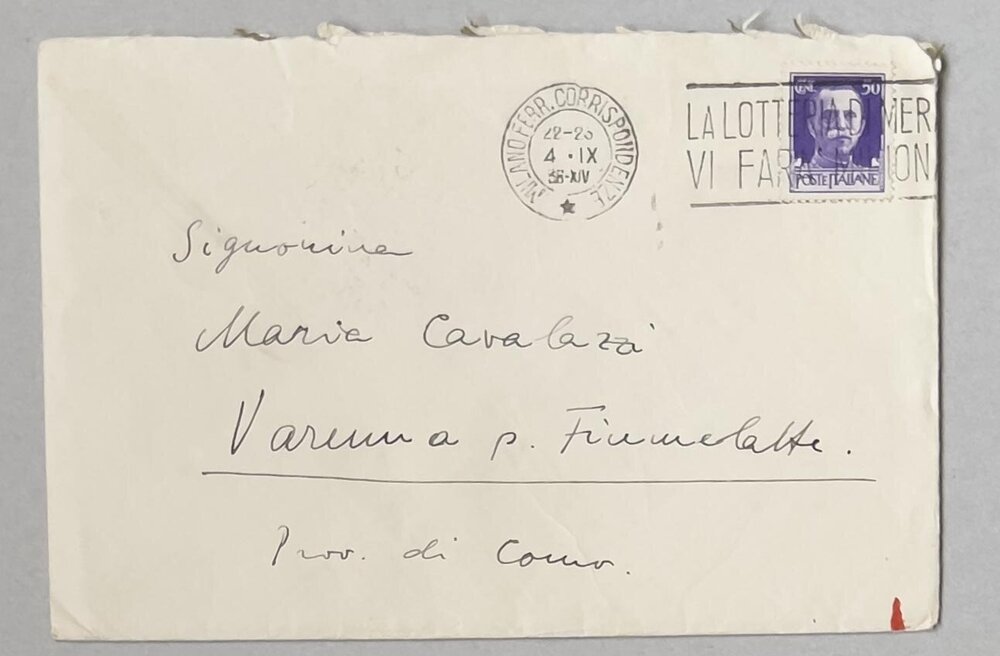 MILANO FERR. CORRISPONDENZE
22-23
4 · IX
36-XIV
CENT. 50
LA LOTTERIA DI MER
VI FARÀ MILION
POSTE ITALIANE
Signorina
Maria Cavalazzi
Varenna p. Fiumelatte.
Prov. di Como.